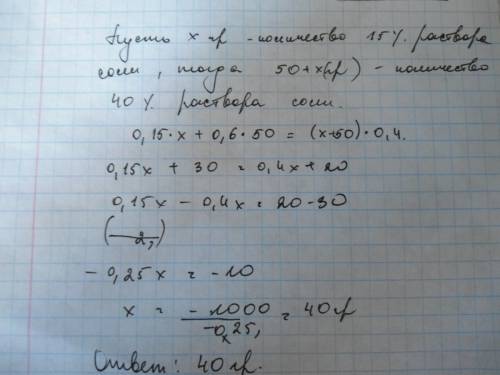 Пусть x гр - количество 15% раствора
соли, тогда 50+x(гр) - количество
40% раствора соли.
0,15·x + 0,6·50 = (x+50)·0,4.
0,15x + 30 = 0,4x + 20
0,15x - 0,4x = 20-30
-0,25x = -10
x = -1000/-0,25, = 40гр
Ответ: 40 гр.